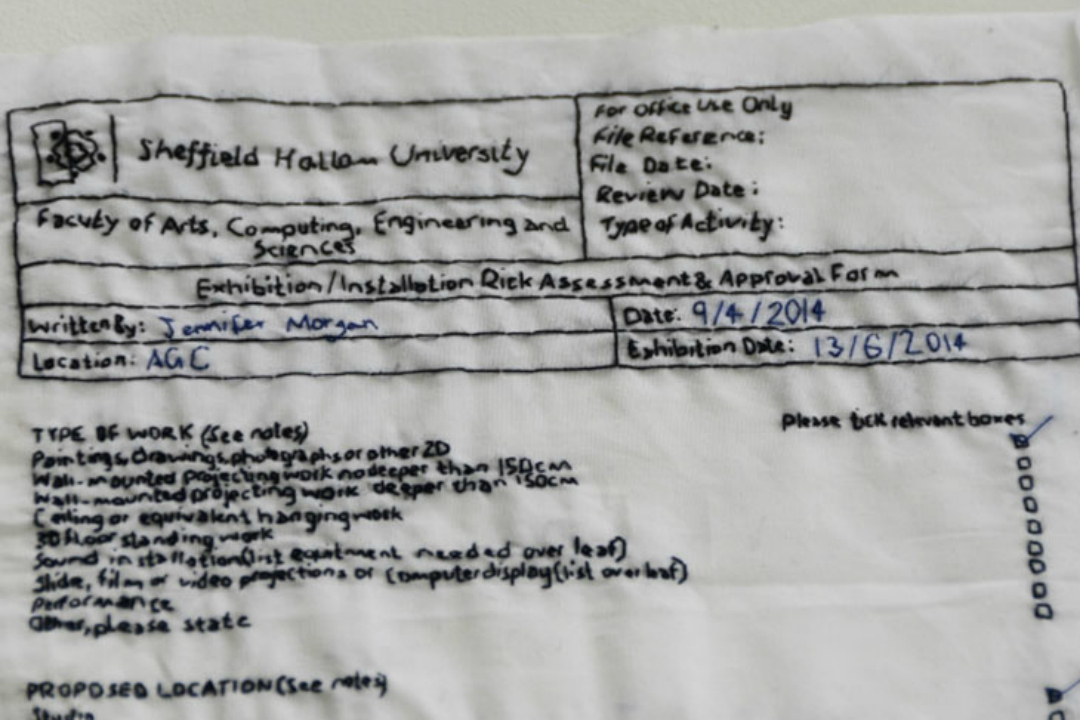 Sheffield Hallam University
For Office Use Only
File Reference:
File Date:
Review Date:
Type of Activity:
Facuty of Arts, Computing, Engineering and
Sciences
Exhibition/Installation Risk Assessment & Approval Form
Written By: Jennifer Morgan
Date: 9/4/2014
Location: AGC
Exhibition Date: 13/6/2014
Please tick relevant boxes
TYPE OF WORK (See notes)
Paintings, Drawings, photographs or other 2D
Wall-mounted projecting work no deeper than 150cm
Wall-mounted projecting work deeper than 150cm
Ceiling or equivalent hanging work
3D floor standing work
Sound installation (list equipment needed over leaf)
Slide, film or video projections or computer display (list over leaf)
Performance
Other, please state
PROPOSED LOCATION (See notes)
Studio